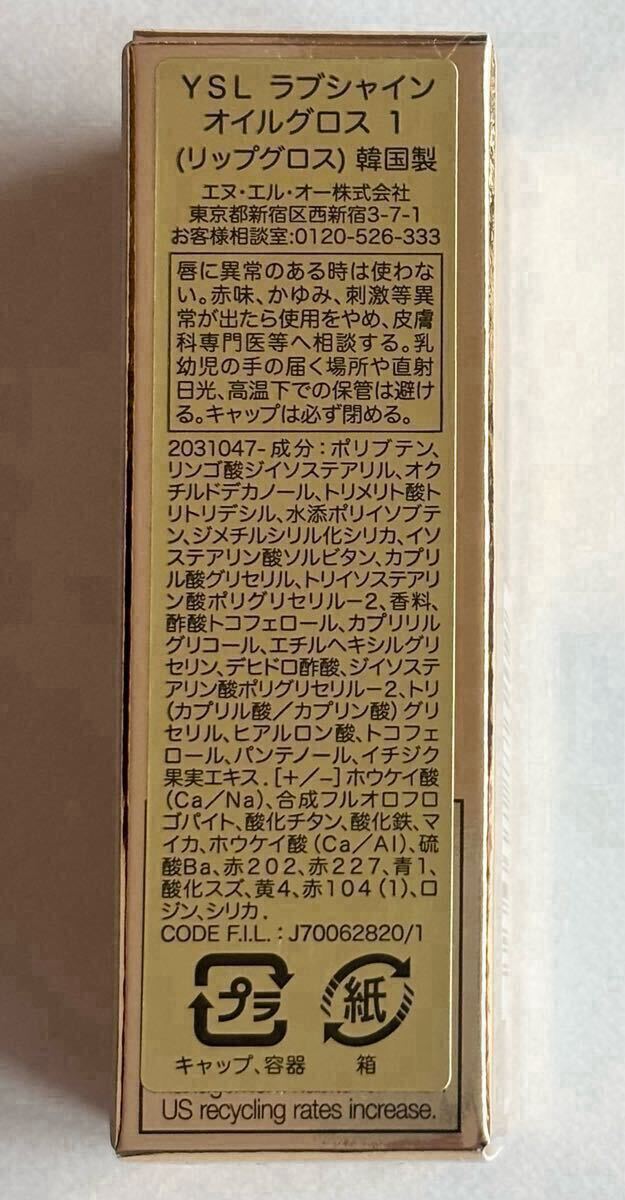 YSL ラブシャイン
オイルグロス 1
(リップグロス) 韓国製
エヌ・エル・オー株式会社
東京都新宿区西新宿3-7-1
お客様相談室:0120-526-333
唇に異常のある時は使わな
い。赤味、かゆみ、刺激等異
常が出たら使用をやめ、皮膚
科専門医等へ相談する。乳
幼児の手の届く場所や直射
日光、高温下での保管は避け
る。キャップは必ず閉める。
2031047-成分：ポリブテン、
リンゴ酸ジイソステアリル、オク
チルドデカノール、トリメリト酸ト
リトリデシル、水添ポリイソブテ
ン、ジメチルシリル化シリカ、イソ
ステアリン酸ソルビタン、カプリ
ル酸グリセリル、トリイソステアリ
ン酸ポリグリセリル－2、香料、
酢酸トコフェロール、カプリリル
グリコール、エチルヘキシルグリ
セリン、デヒドロ酢酸、ジイソステ
アリン酸ポリグリセリル－2、トリ
(カプリル酸／カプリン酸)グリ
セリル、ヒアルロン酸、トコフェ
ロール、パンテノール、イチジク
果実エキス．[+/−]ホウケイ酸
(Ca／Na)、合成フルオロフロ
ゴパイト、酸化チタン、酸化鉄、マ
イカ、ホウケイ酸(Ca／Al)、硫
酸Ba、赤202、赤227、青1、
酸化スズ、黄4、赤104(1)、ロ
ジン、シリカ．
CODE F.I.L. : J70062820/1
プラ 紙
キャップ、容器 箱
US recycling rates increase.